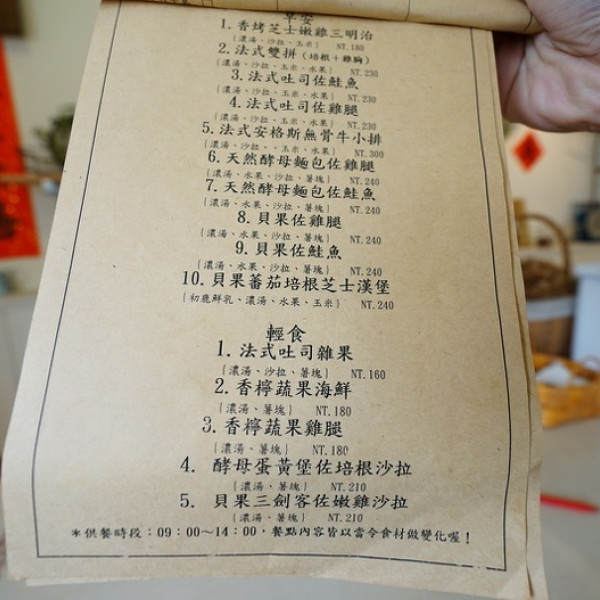 早安
1. 香烤芝士嫩雞三明治
{濃湯、沙拉、玉米} NT.180
2. 法式雙拼(培根+雞胸)
{濃湯、沙拉、玉米、水果} NT.230
3. 法式吐司佐鮭魚
{濃湯、沙拉、玉米、水果} NT.230
4. 法式吐司佐雞腿
{濃湯、沙拉、玉米、水果} NT.230
5. 法式安格斯無骨牛小排
{濃湯、沙拉、、玉米、水果} NT.300
6. 天然酵母麵包佐雞腿
{濃湯、水果、沙拉、薯塊} NT.240
7. 天然酵母麵包佐鮭魚
{濃湯、水果、沙拉、薯塊} NT.240
8. 貝果佐雞腿
{濃湯、水果、沙拉、薯塊} NT.240
9. 貝果佐鮭魚
{濃湯、水果、沙拉、薯塊} NT.240
10. 貝果蕃茄培根芝士漢堡
{初鹿鮮乳、濃湯、水果、玉米} NT.240
輕食
1. 法式吐司雜果
{濃湯、沙拉、薯塊} NT.160
2. 香檸蔬果海鮮
{濃湯、薯塊} NT.180
3. 香檸蔬果雞腿
{濃湯、薯塊} NT.180
4. 酵母蛋黃堡佐培根沙拉
{濃湯、薯塊} NT.210
5. 貝果三劍客佐嫩雞沙拉
{濃湯、薯塊} NT.210
*供餐時段:09:00~14:00,餐點內容皆以當令食材做變化喔!